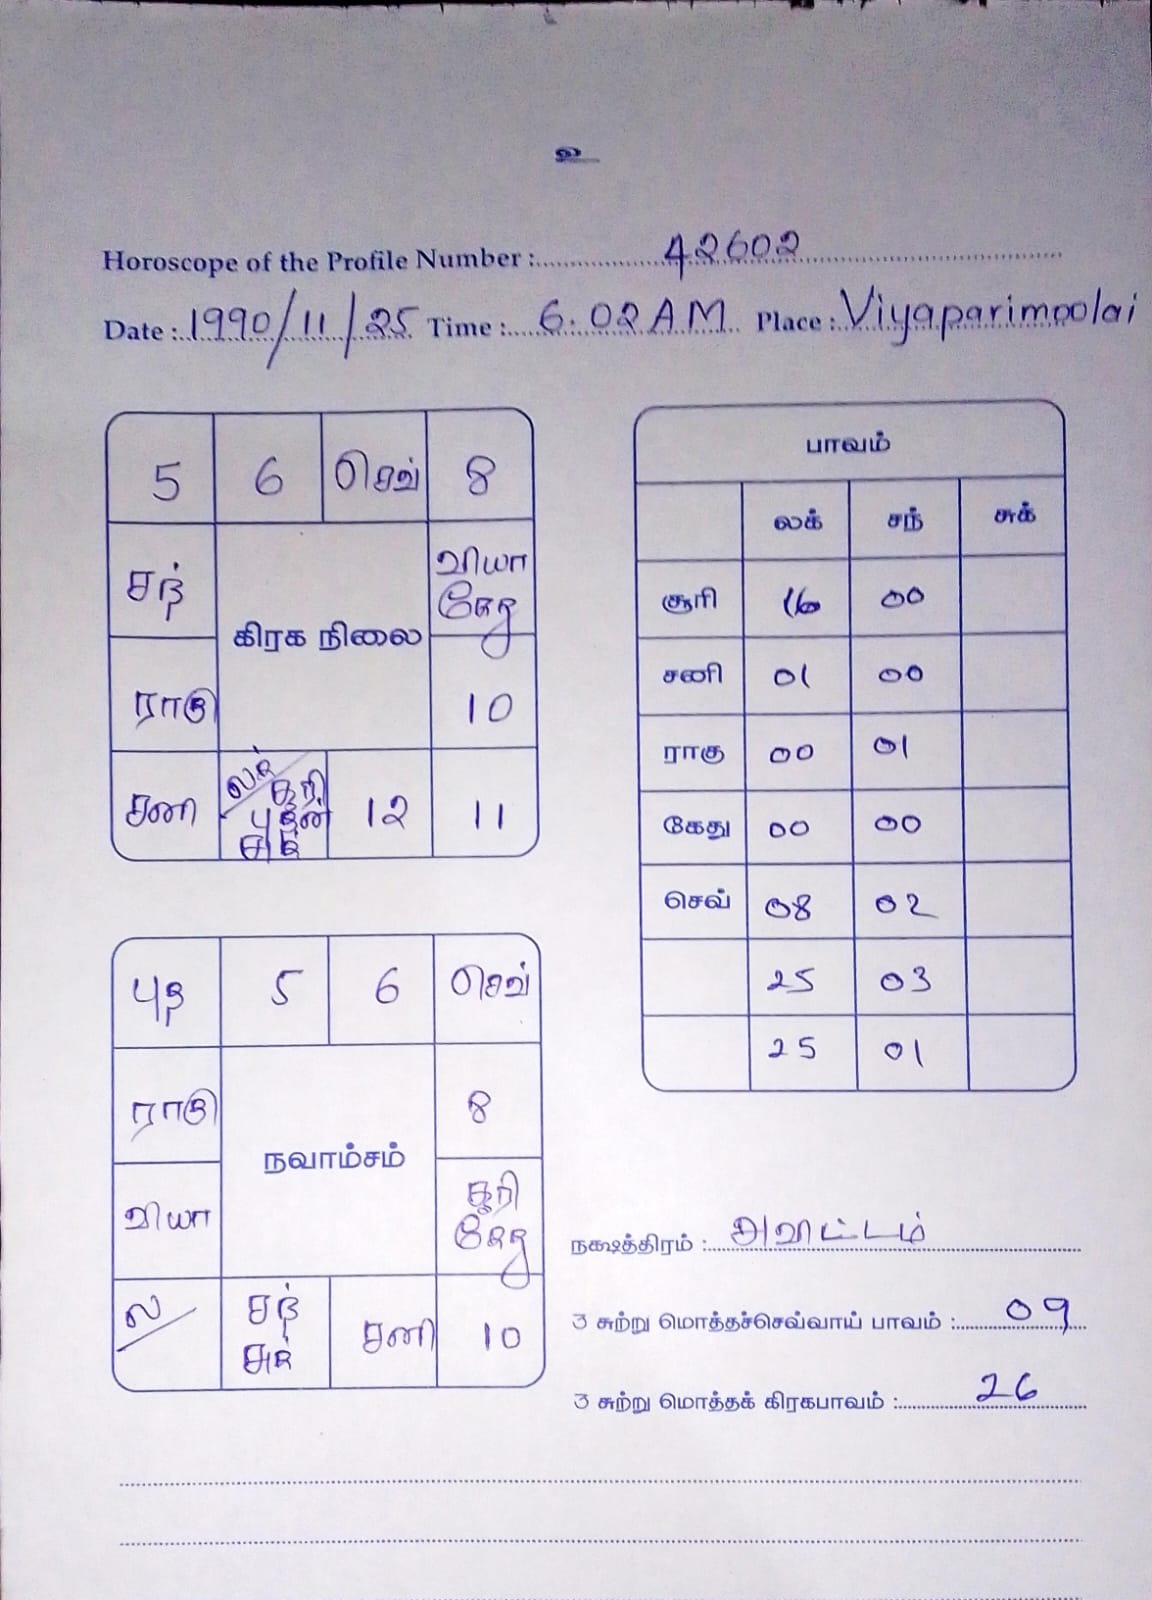 உ
Horoscope of the Profile Number : 42602
Date : 1990/11/25 Time : 6.02 AM Place : Viyaparimoolai
5 6 செவ் 8
சந் வியா கேது
கிரக நிலை
ராகு 10
சனி ல/ சூரி புதன் சுக் 12 11
பாவம்
லக் சந் சுக்
சூரி 16 00
சனி 01 00
ராகு 00 01
கேது 00 00
செவ் 08 02
25 03
25 01
புத 5 6 செவ்
ராகு 8
நவாம்சம்
வியா சூரி கேது
ல/ சந் சுக் சனி 10
நக்ஷத்திரம் : அவிட்டம்
3 சுற்று மொத்தச்செவ்வாய் பாவம் : 09
3 சுற்று மொத்தக் கிரகபாவம் : 26